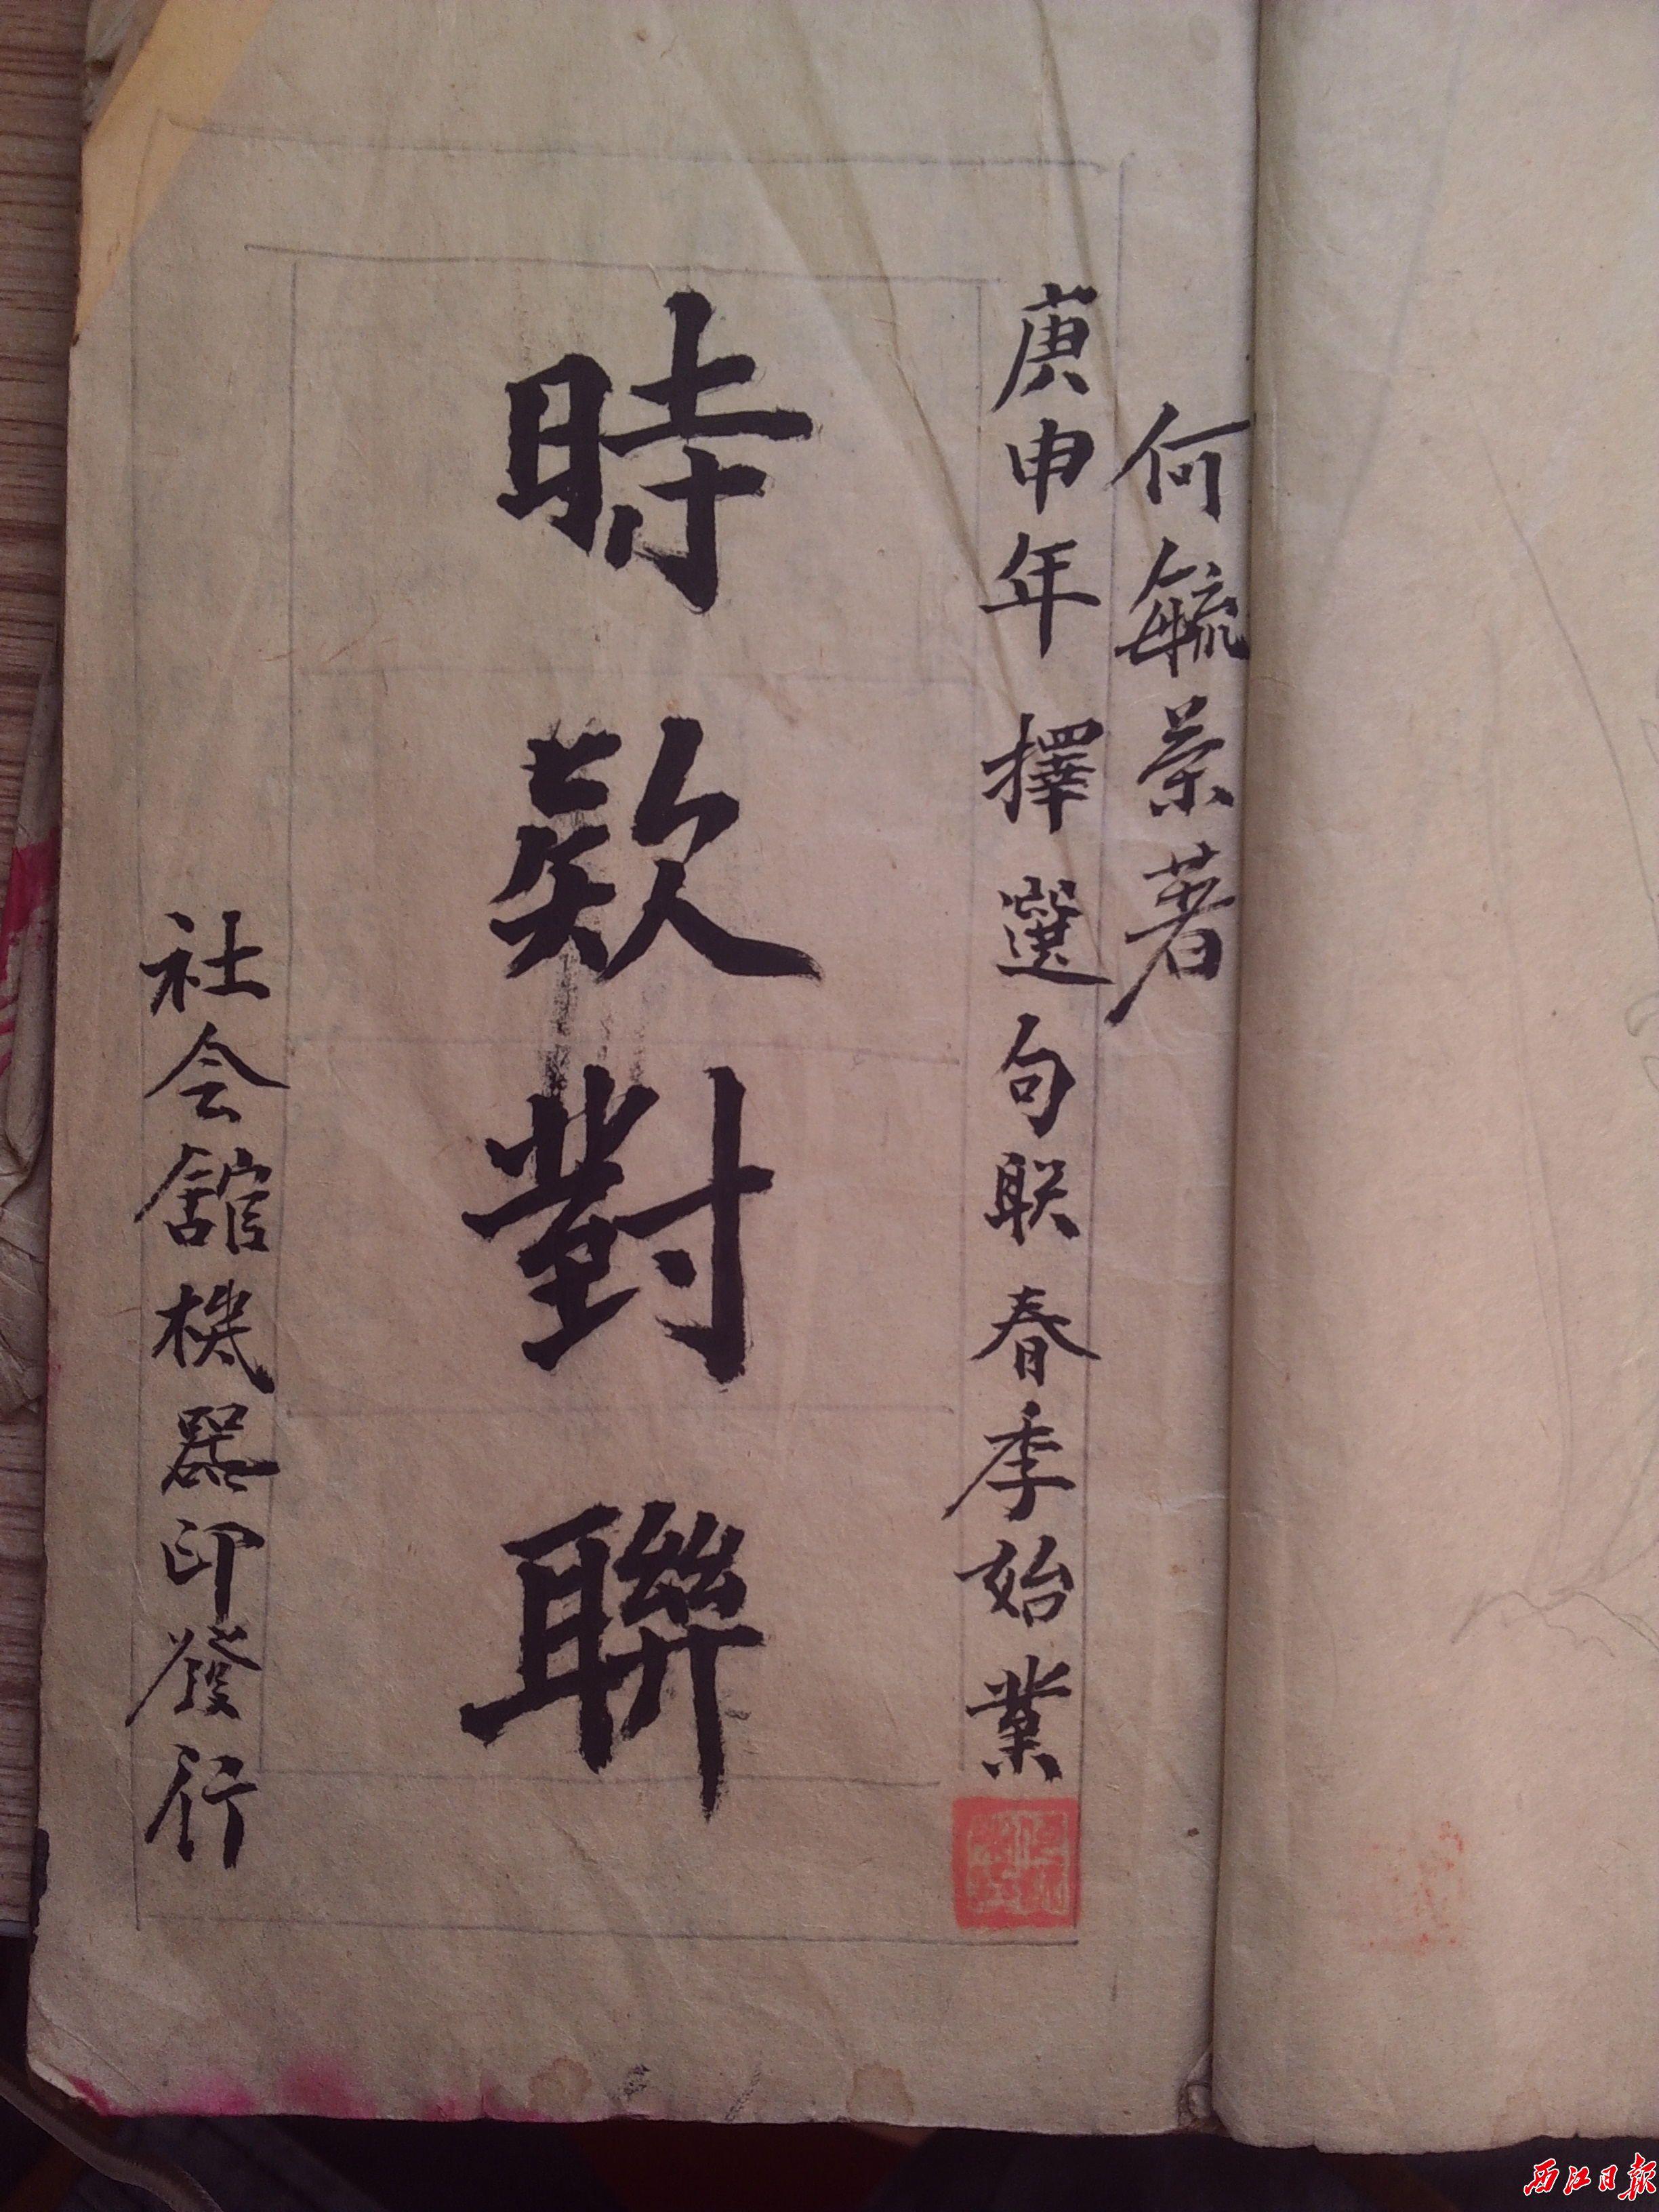 何毓荣著
庚申年擇選句联春季始業
時欵對聯
社会舘機器印發行
西江日报